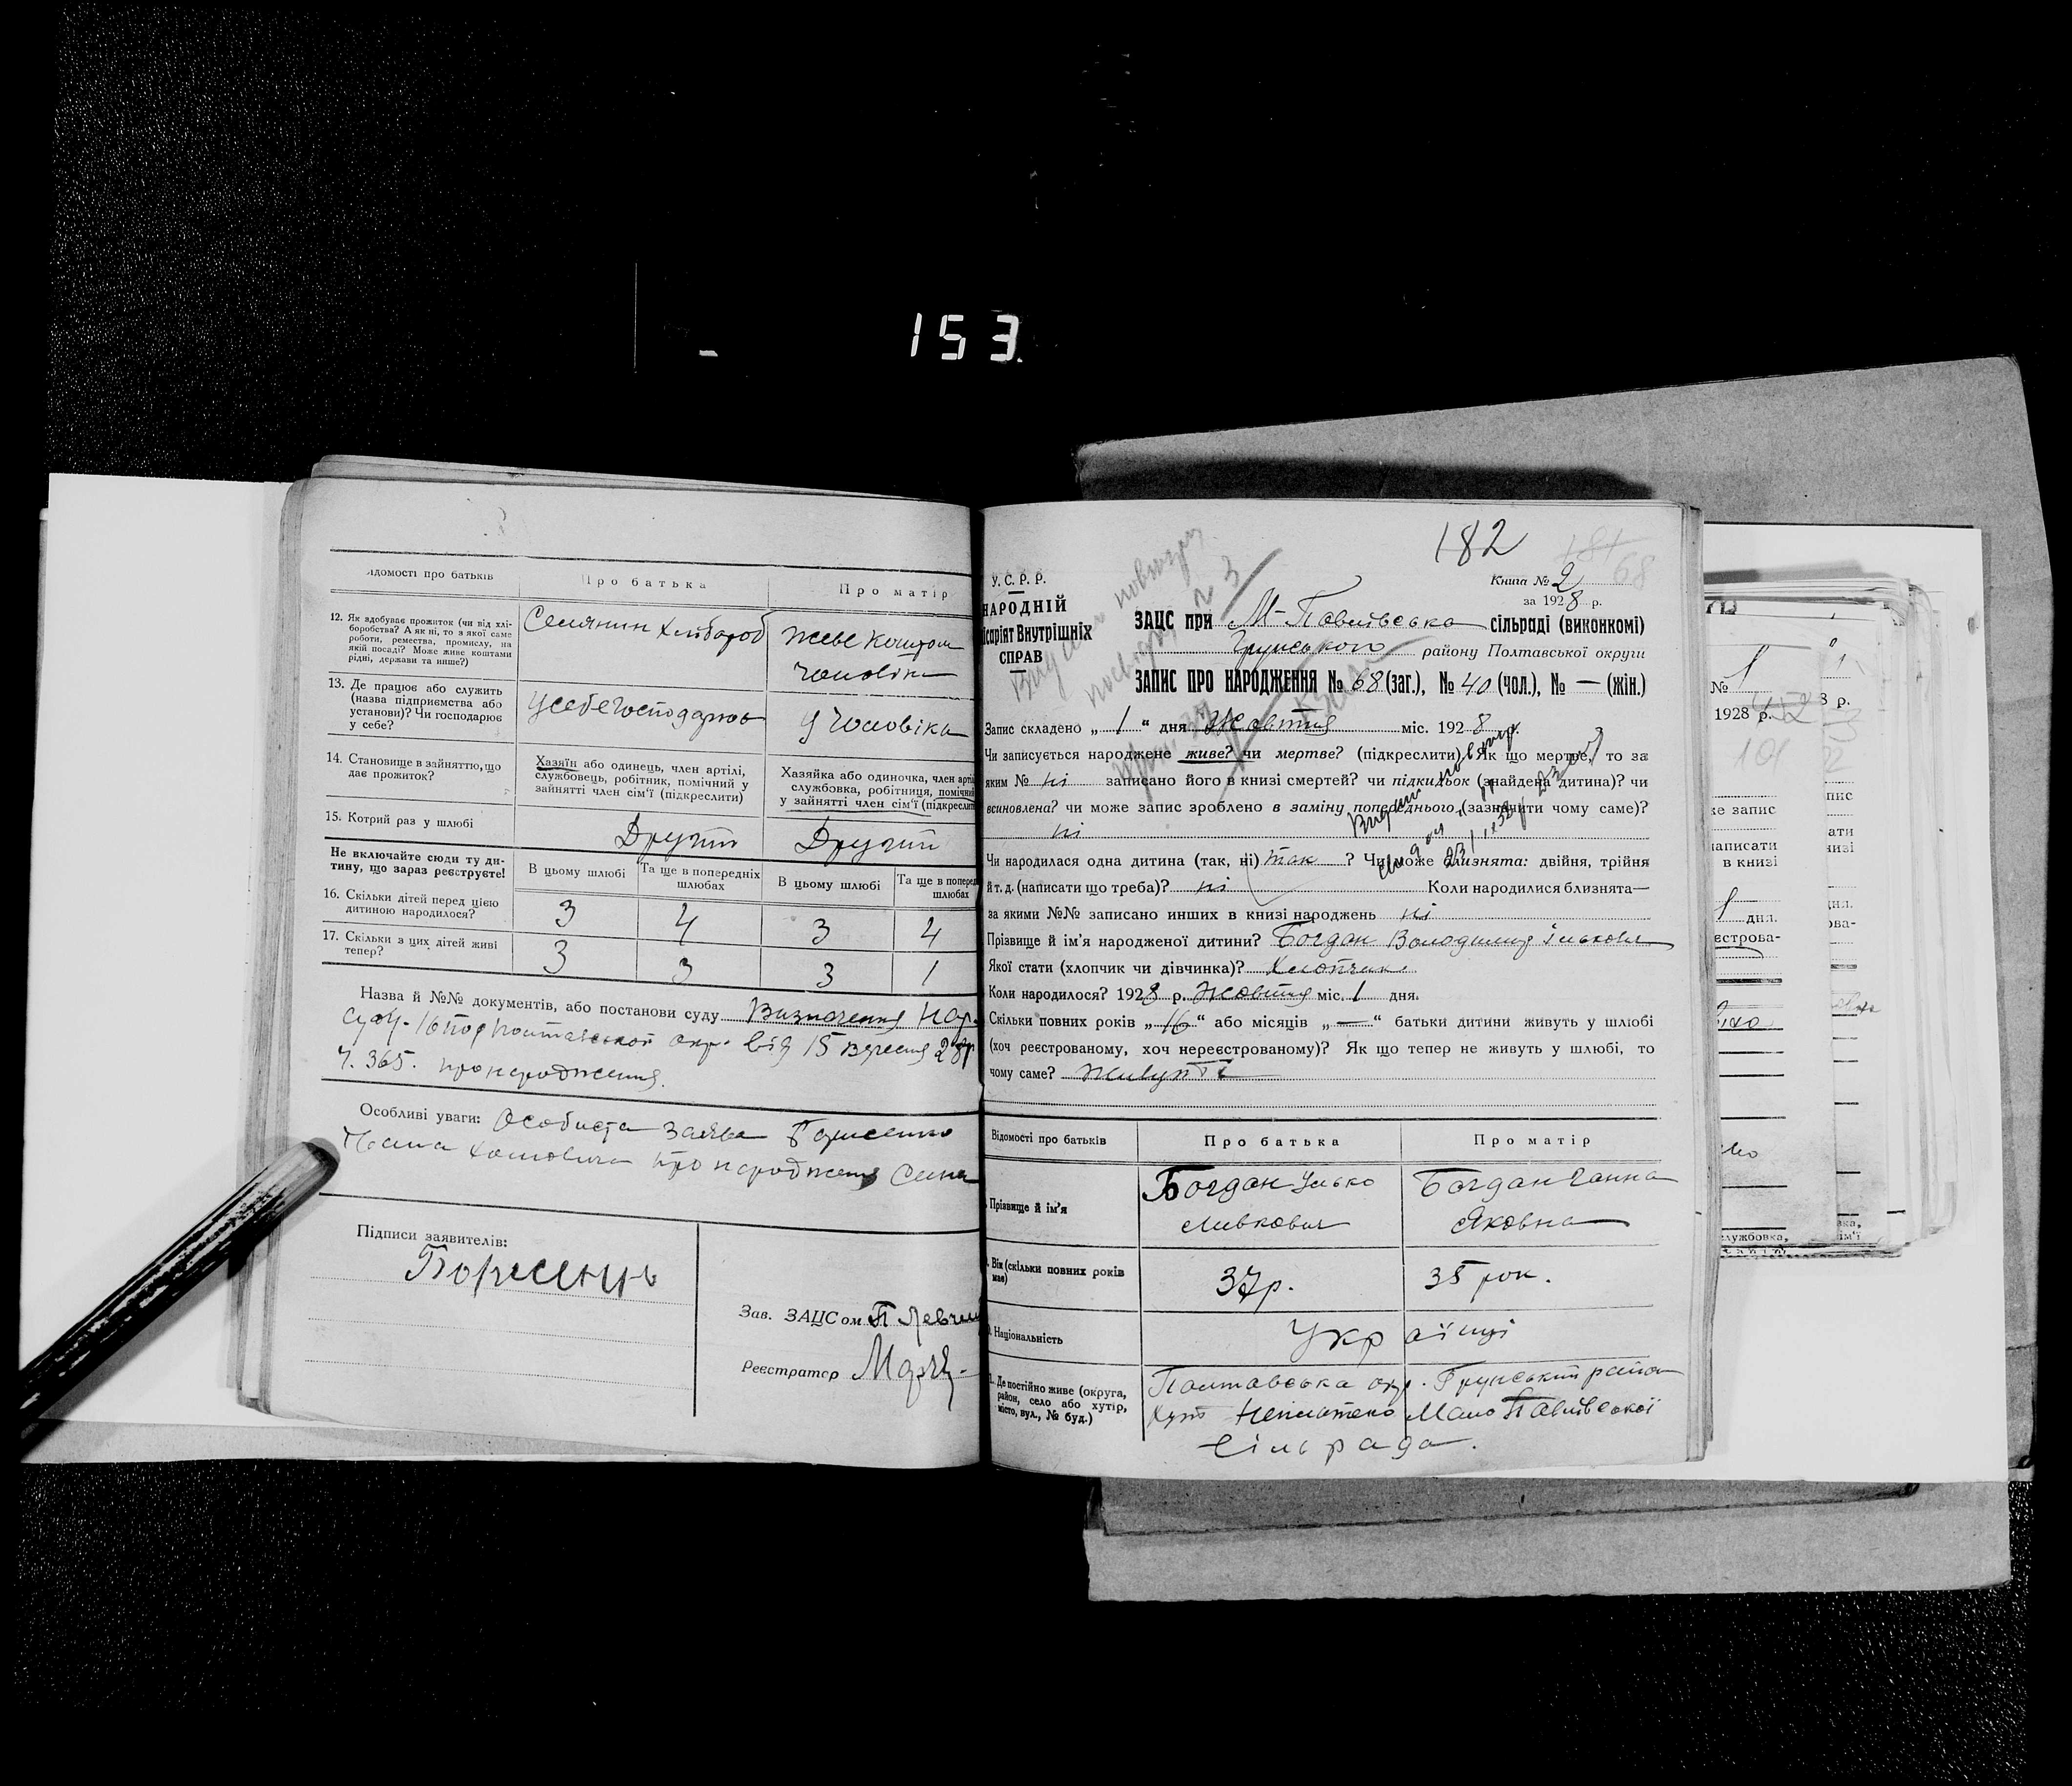 153.
Відомості про батьків
Про батька
Про матір
12. Як здобуває прожиток (чи від хлі-
боробства? А як ні, то з якої саме
роботи, ремества, промислу, на
якій посаді? Може живе коштами
рідні, держави та инше?)
Селянин Хлібороб
живе коштом
чоловіка
13. Де працює або служить
(назва підприємства або
установи)? Чи господарює
у себе?
у себе Господарює
У Чоловіка
14. Становище в зайняттю, що
дає прожиток?
Хазяїн або одинець, член артілі,
службовець, робітник, помічний у
зайнятті член сім'ї (підкреслити)
Хазяйка або одиночка, член арті
службовка, робітниця, помічний
у зайнятті член сім'ї (підкреслити
15. Котрий раз у шлюбі
Другий
Другий
Не включайте сюди ту ди-
тину, що зараз реєструєте!
В цьому шлюбі
Та ще в попередніх
шлюбах
В цьому шлюбі
Та ще в поперед
шлюбах
16. Скільки дітей перед цією
дитиною народилося?
3 4 3 4
17. Скільки з цих дітей живі
тепер?
3 3 3 1
Назва й №№ документів, або постанови суду Визначення Нар.
Суду-16 Полтавської окр. від 15 вересня 28р
Ч. 365. про народження.
Особливі уваги: Особиста заява
про народження Сина
Підписи заявителів:
Зав. ЗАЦСом П Левчен
Реєстратор
182
181
68
У.С.Р.Р.
НАРОДНІЙ
Місаріят Внутрішніх
СПРАВ
Книга № 2
за 1928 р.
ЗАЦС при М-Павлівська сільраді (виконкомі)
Грунського району Полтавської округи
ЗАПИС ПРО НАРОДЖЕННЯ № 68 (заг.), № 40 (чол.), № — (жін.)
Запис складено „ 1 “ дня Жовтня міс. 1928 р.
Чи записується народжене живе? чи мертве? (підкреслити). Як що мертве, то за
яким № ні записано його в книзі смертей? чи підкидьок (знайдена дитина)? чи
всиновлена? чи може запис зроблено в заміну попереднього (зазначити чому саме)?
ні
Чи народилася одна дитина (так, ні) так ? Чи може близнята: двійня, трійня
й т. д. (написати що треба)? ні Коли народилися близнята—
за якими №№ записано инших в книзі народжень ні
Прізвище й ім'я народженої дитини? Богдан Володимир Ількович
Якої стати (хлопчик чи дівчинка)? Хлопчик
Коли народилося? 1928 р. Жовтня міс. 1 дня.
Скільки повних років „ 16 “ або місяців „ — “ батьки дитини живуть у шлюбі
(хоч реєстрованому, хоч нереєстрованому)? Як що тепер не живуть у шлюбі, то
чому саме? Живуть
Відомості про батьків
Про батька
Про матір
Прізвище й ім'я
Богдан Ілько
Левкович
Богдан Ганна
Яковна
Вік (скільки повних років
має)
37р.
35 рок.
Національність
Українці
Де постійно живе (округа,
район, село або хутір,
місто, вул., № буд.)
Полтавська окр. Грунський район
Хут Мало Павлівської
Сільрада.
№ 1
1928 р.